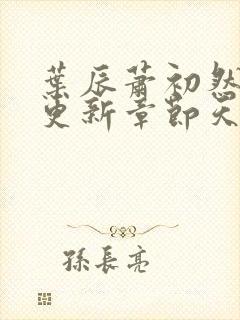 葉辰蕭初然
更新章節天
孫長亮